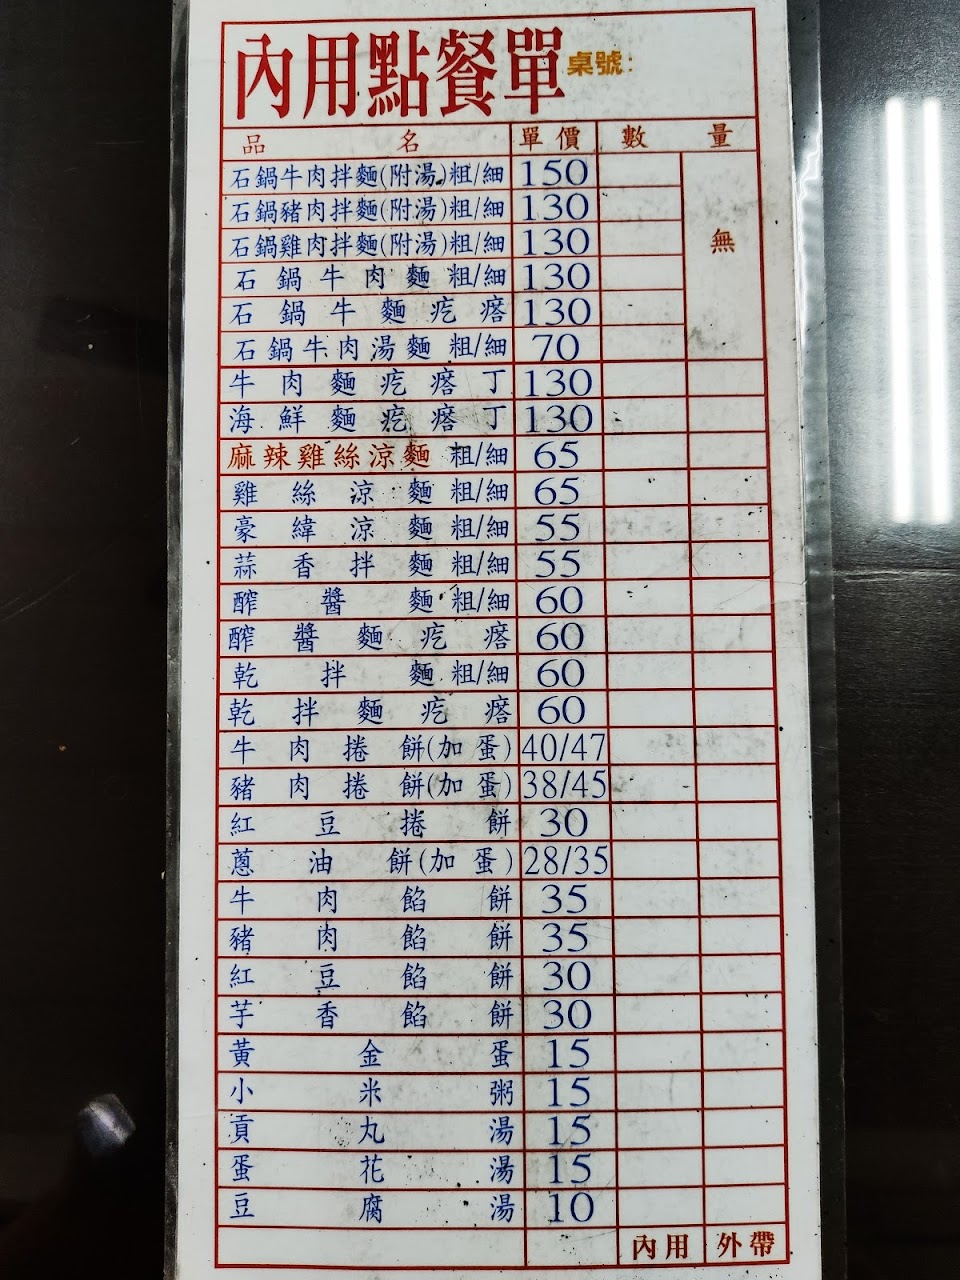 內用點餐單 桌號:
品名 單價 數量
石鍋牛肉拌麵(附湯)粗/細 150
石鍋豬肉拌麵(附湯)粗/細 130
石鍋雞肉拌麵(附湯)粗/細 130 無
石鍋牛肉麵 粗/細 130
石鍋牛麵疙瘩 130
石鍋牛肉湯麵 粗/細 70
牛肉麵疙瘩丁 130
海鮮麵疙瘩丁 130
麻辣雞絲涼麵 粗/細 65
雞絲涼麵 粗/細 65
豪緯涼麵 粗/細 55
蒜香拌麵 粗/細 55
醡醬麵 粗/細 60
醡醬麵疙瘩 60
乾拌麵 粗/細 60
乾拌麵疙瘩 60
牛肉捲餅(加蛋) 40/47
豬肉捲餅(加蛋) 38/45
紅豆捲餅 30
蔥油餅(加蛋) 28/35
牛肉餡餅 35
豬肉餡餅 35
紅豆餡餅 30
芋香餡餅 30
黃金蛋 15
小米粥 15
貢丸湯 15
蛋花湯 15
豆腐湯 10
內用 外帶